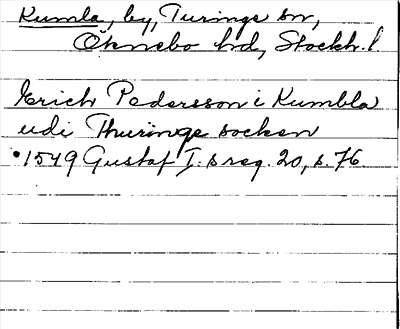 Kumla, by, Turinge sn,
Öknebo hd, Stockh. l.
Erich Pedersson i Kumbla
udi Thuringe socken
• 1549 Gustaf I:s reg. 20, s. 76.